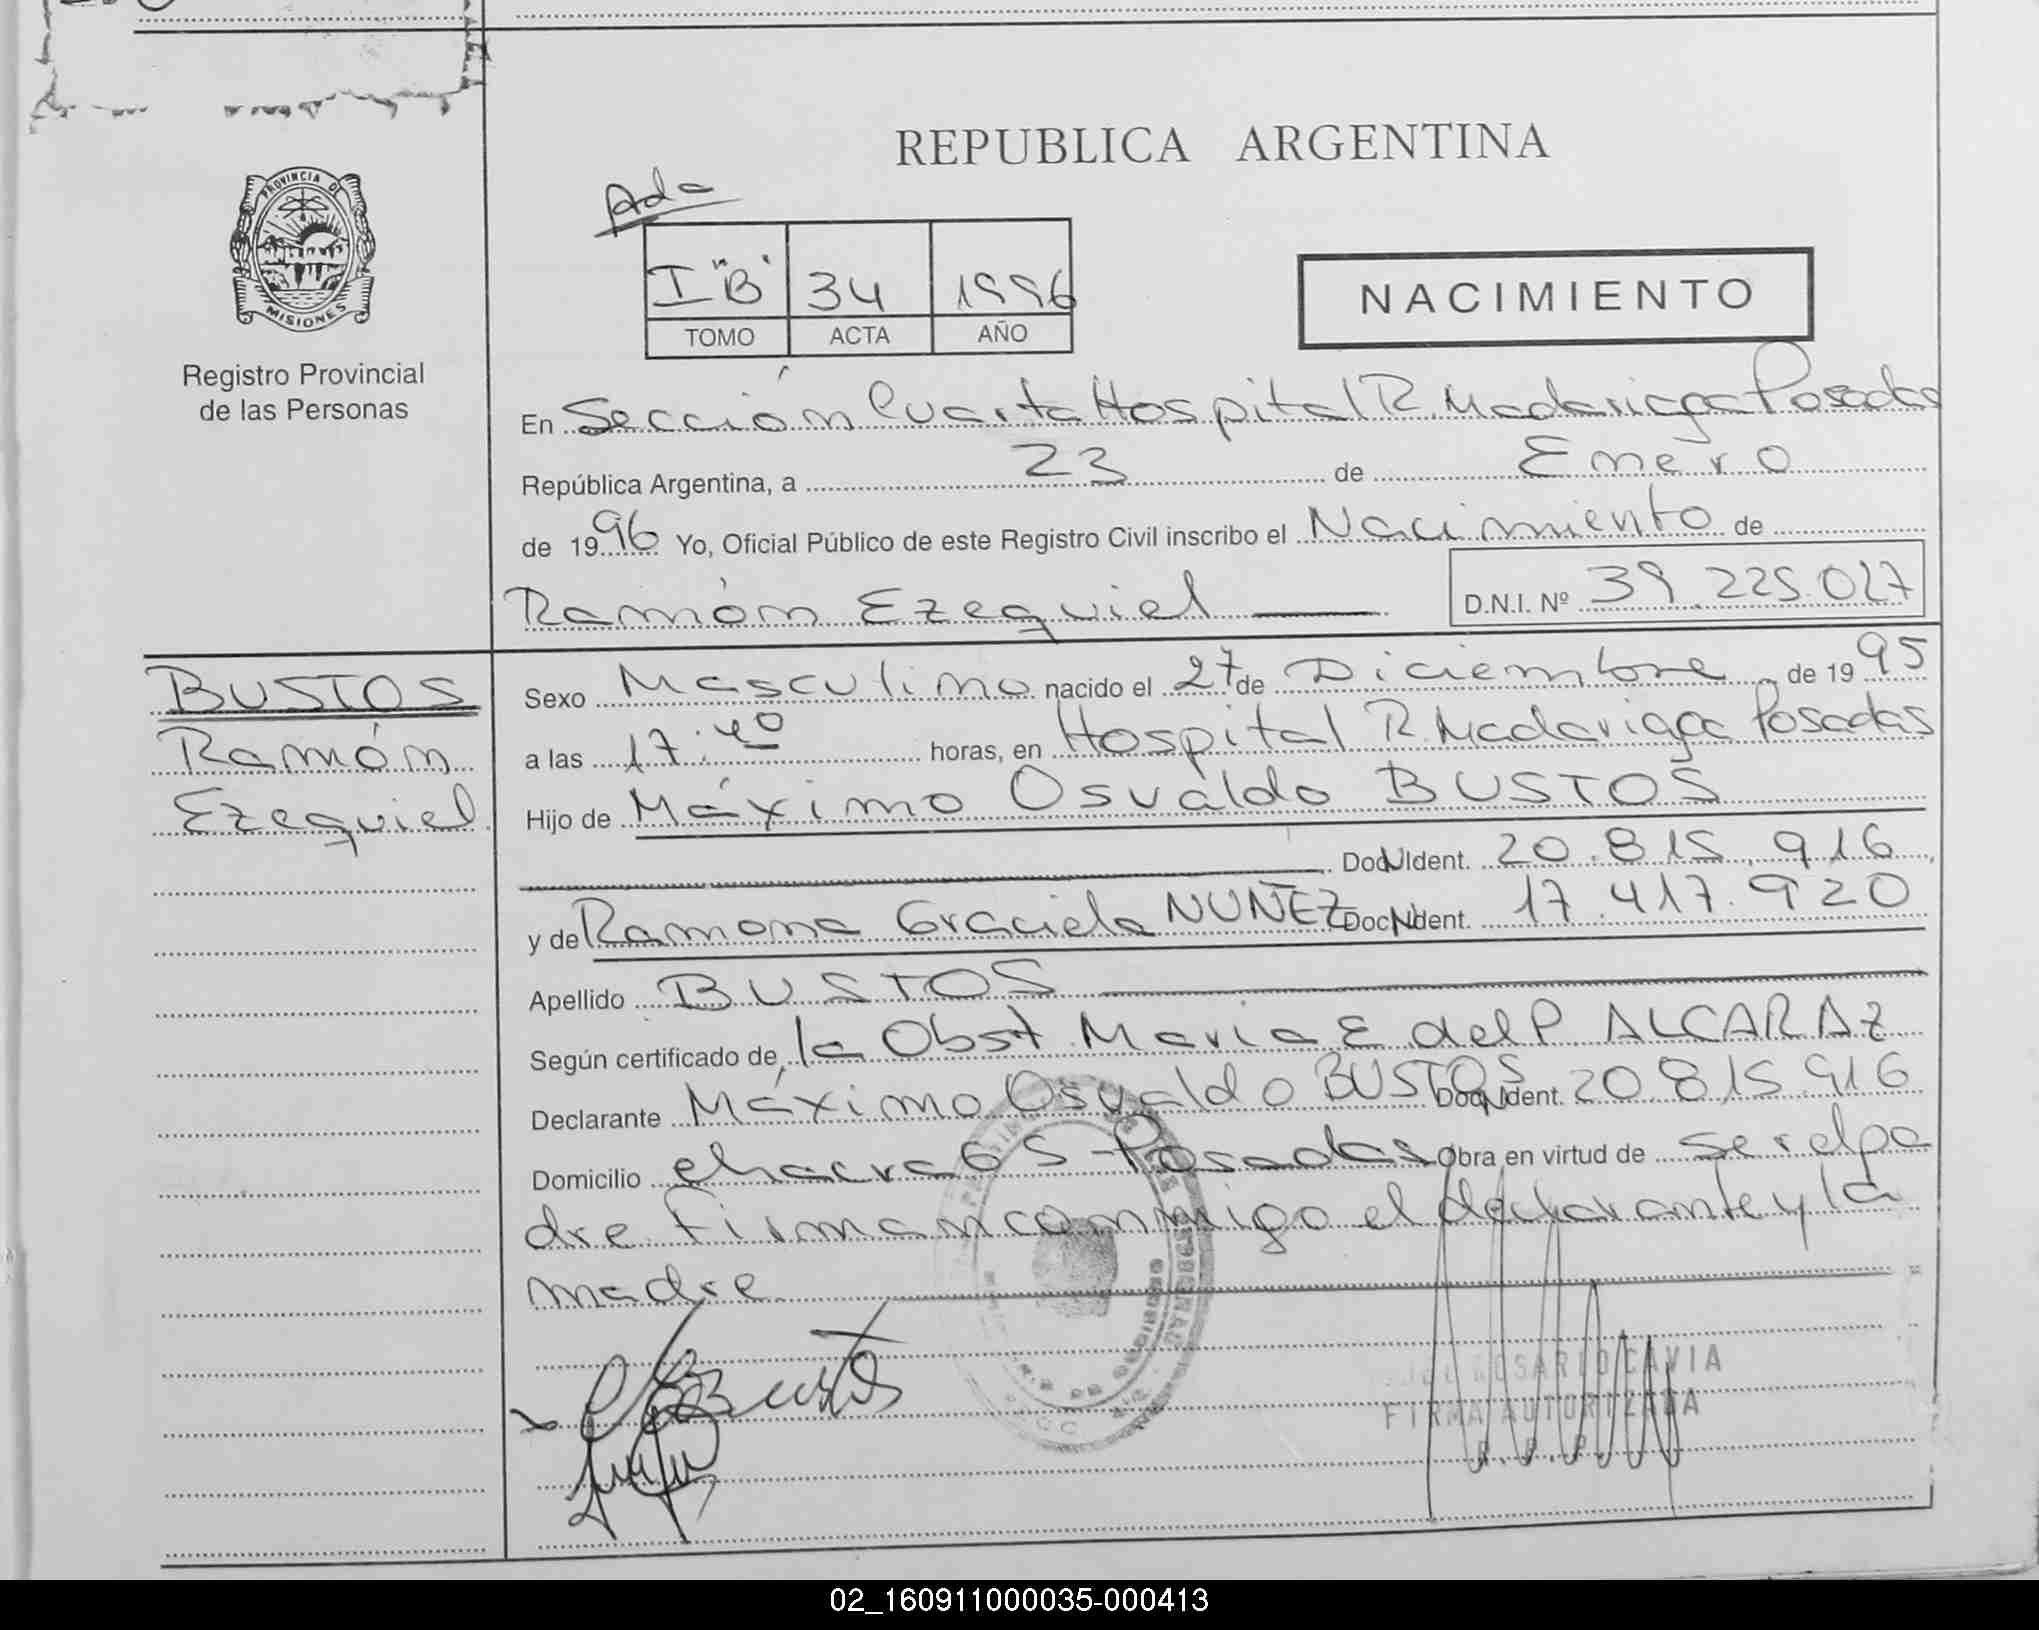 REPUBLICA ARGENTINA
Ada
I "B" 34 1996
TOMO ACTA AÑO
NACIMIENTO
PROVINCIA D
MISIONES
Registro Provincial
de las Personas
En Sección Cuarta Hospital R. Madariaga Posadas
República Argentina, a 23 de Enero
de 1996 Yo, Oficial Público de este Registro Civil inscribo el Nacimiento de
Ramón Ezequiel D.N.I. Nº 39.225.027
BUSTOS
Ramón
Ezequiel
Sexo Masculino nacido el 27 de Diciembre de 1995
a las 17:40 horas, en Hospital R. Madariaga Posadas
Hijo de Máximo Osvaldo BUSTOS
DocNIdent. 20.815.916
y de Ramona Graciela NUÑEZ DocNIdent. 17.417.920
Apellido BUSTOS
Según certificado de la Obst. Maria E del P ALCARAZ
Declarante Máximo Osvaldo BUSTOS DocNIdent. 20.815.916
Domicilio chacra 65 - Posadas Obra en virtud de ser el pa
dre Firman conmigo el declarante y la
madre
Bustos
ROSARIO CAVIA
FIRMA AUTORIZADA
R.P.P.
02_160911000035-000413